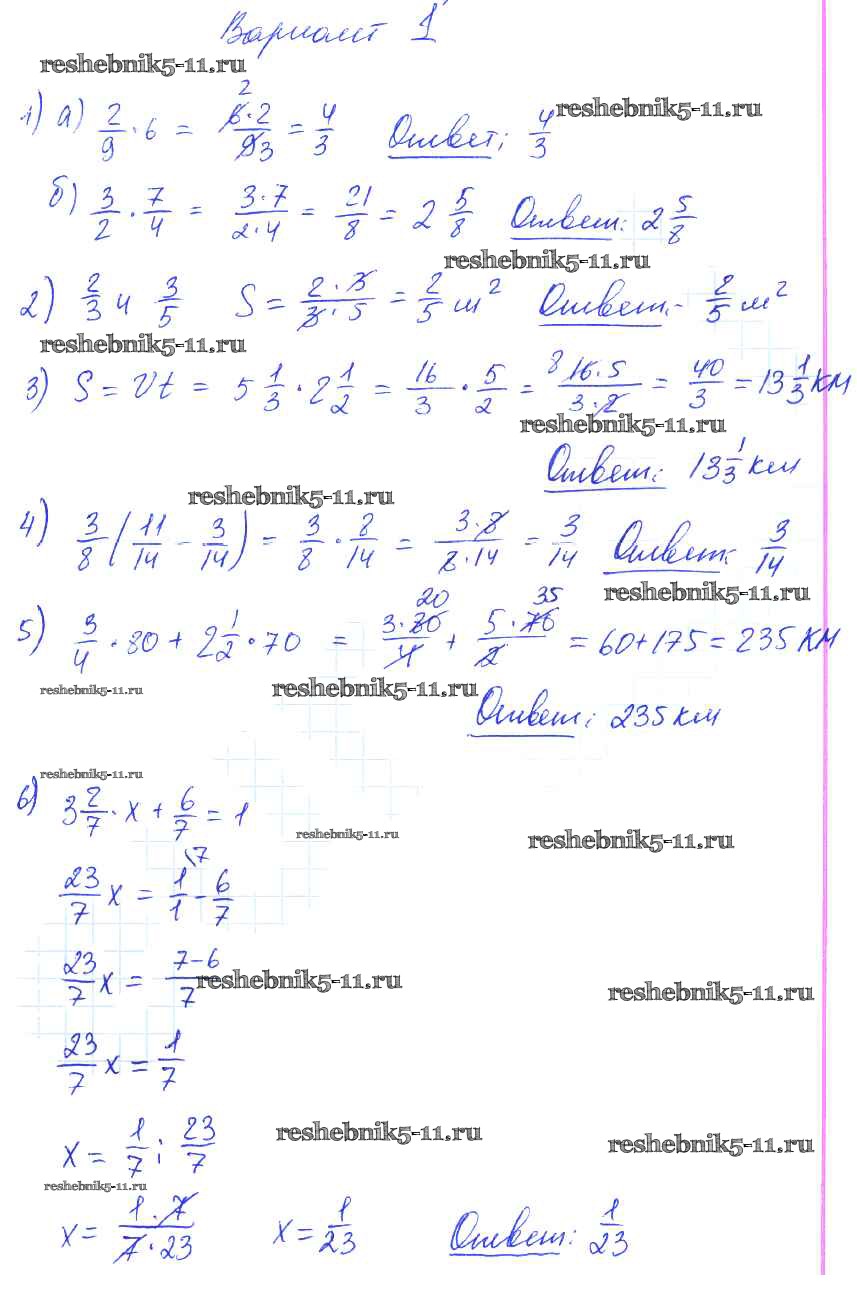 Вариант 1
reshebnik5-11.ru
1) а) 2/9 · 6 = 6·2/9 2 3 = 4/3 Ответ: 4/3 reshebnik5-11.ru
б) 3/2 · 7/4 = 3·7/2·4 = 21/8 = 2 5/8 Ответ: 2 5/8
reshebnik5-11.ru
2) 2/3 и 3/5 S = 2·3/3·5 = 2/5 м² Ответ: 2/5 м²
reshebnik5-11.ru
3) S = Vt = 5 1/3 · 2 1/2 = 16/3 · 5/2 = 8 16·5/3·2 = 40/3 = 13 1/3 КМ
reshebnik5-11.ru
Ответ: 13 1/3 км
reshebnik5-11.ru
4) 3/8 (11/14 - 3/14) = 3/8 · 8/14 = 3·8/8·14 = 3/14 Ответ: 3/14
reshebnik5-11.ru
5) 3/4 · 80 + 2 1/2 · 70 = 3·80/4 20 + 5·70/2 35 = 60+175 = 235 КМ
reshebnik5-11.ru reshebnik5-11.ru
Ответ: 235 км
reshebnik5-11.ru
6) 3 2/7 · x + 6/7 = 1
reshebnik5-11.ru reshebnik5-11.ru
23/7 x = 1/1 \7 - 6/7
23/7 x = 7-6/7 reshebnik5-11.ru
reshebnik5-11.ru
23/7 x = 1/7
x = 1/7 : 23/7 reshebnik5-11.ru reshebnik5-11.ru
reshebnik5-11.ru
x = 1·7/7·23 x = 1/23 Ответ: 1/23